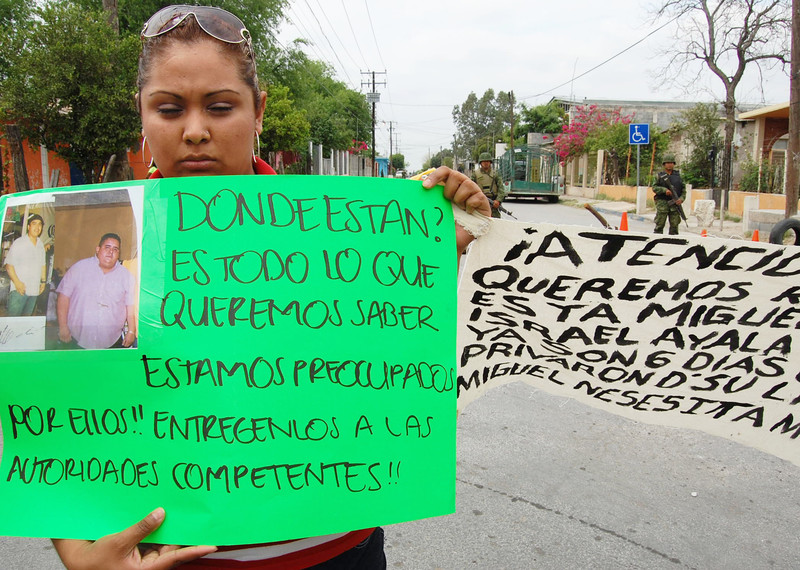 DONDE ESTAN?
ES TODO LO QUE
QUEREMOS SABER
ESTAMOS PREOCUPADOS
POR ELLOS!! ENTREGENLOS A LAS
AUTORIDADES COMPETENTES!!
¡ATENCIO
QUEREMOS
ESTA MIGUE
ISRAEL AYALA
YA SON 6 DIAS
PRIVARON D SU L
MIGUEL NESESITA M